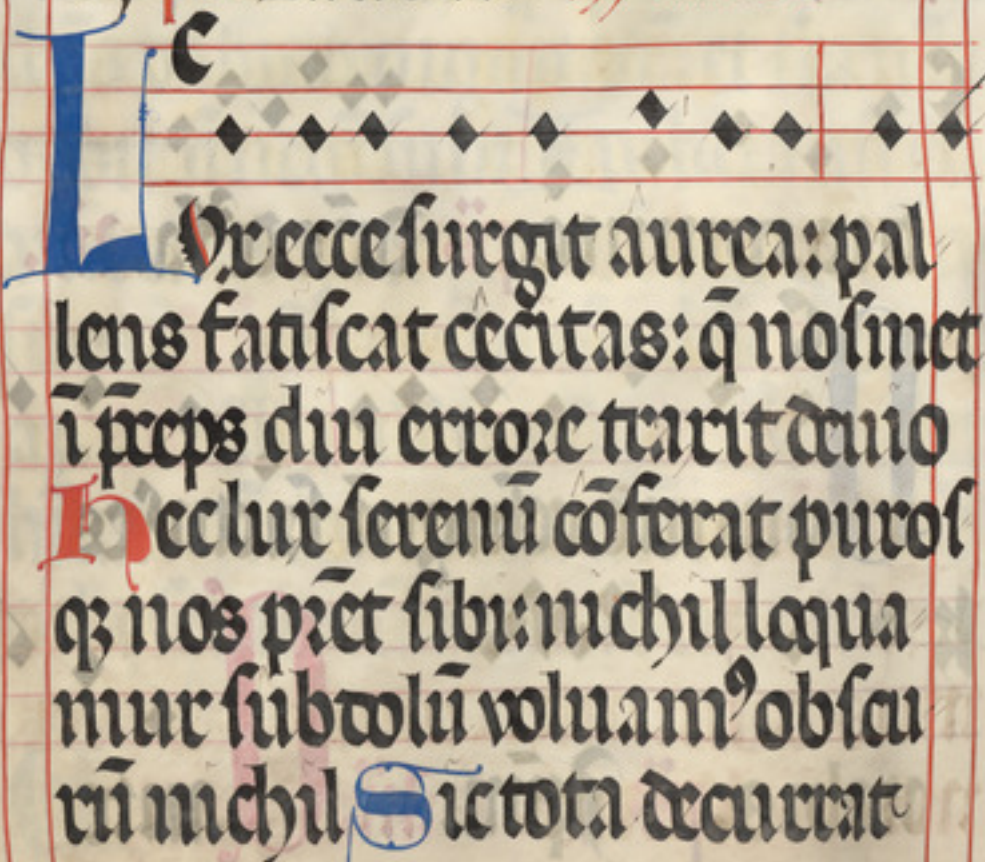 c
Lux ecce surgit aurea: pal
lens fatiscat cecitas: q̄ nosmet
ī p̄ceps diu errore traxit deuio
Hec lux serenū cōferat puros
qꝫ nos p̄r̄et sibi: nichil loqua
mur subdolū voluamꝰ obscu
rū nichil Sic tota decurrat